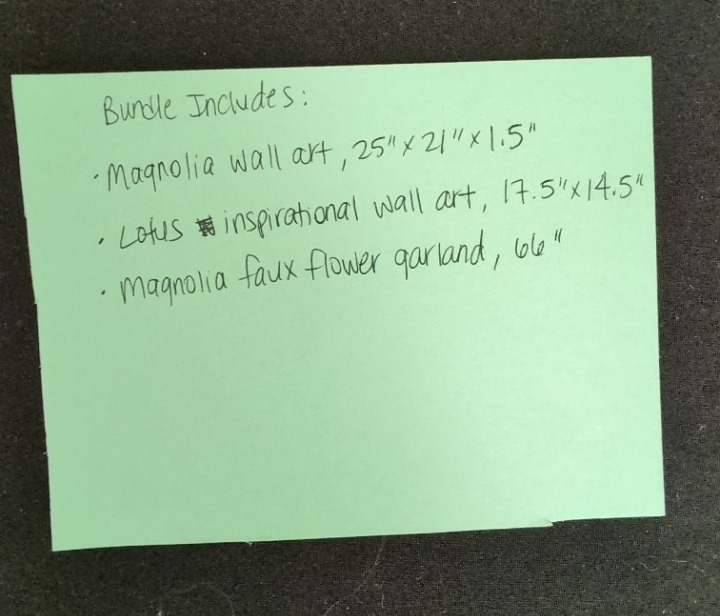 Bundle Includes:
· Magnolia wall art, 25" x 21" x 1.5"
· Lotus inspirational wall art, 17.5" x 14.5"
· Magnolia faux flower garland, 66"